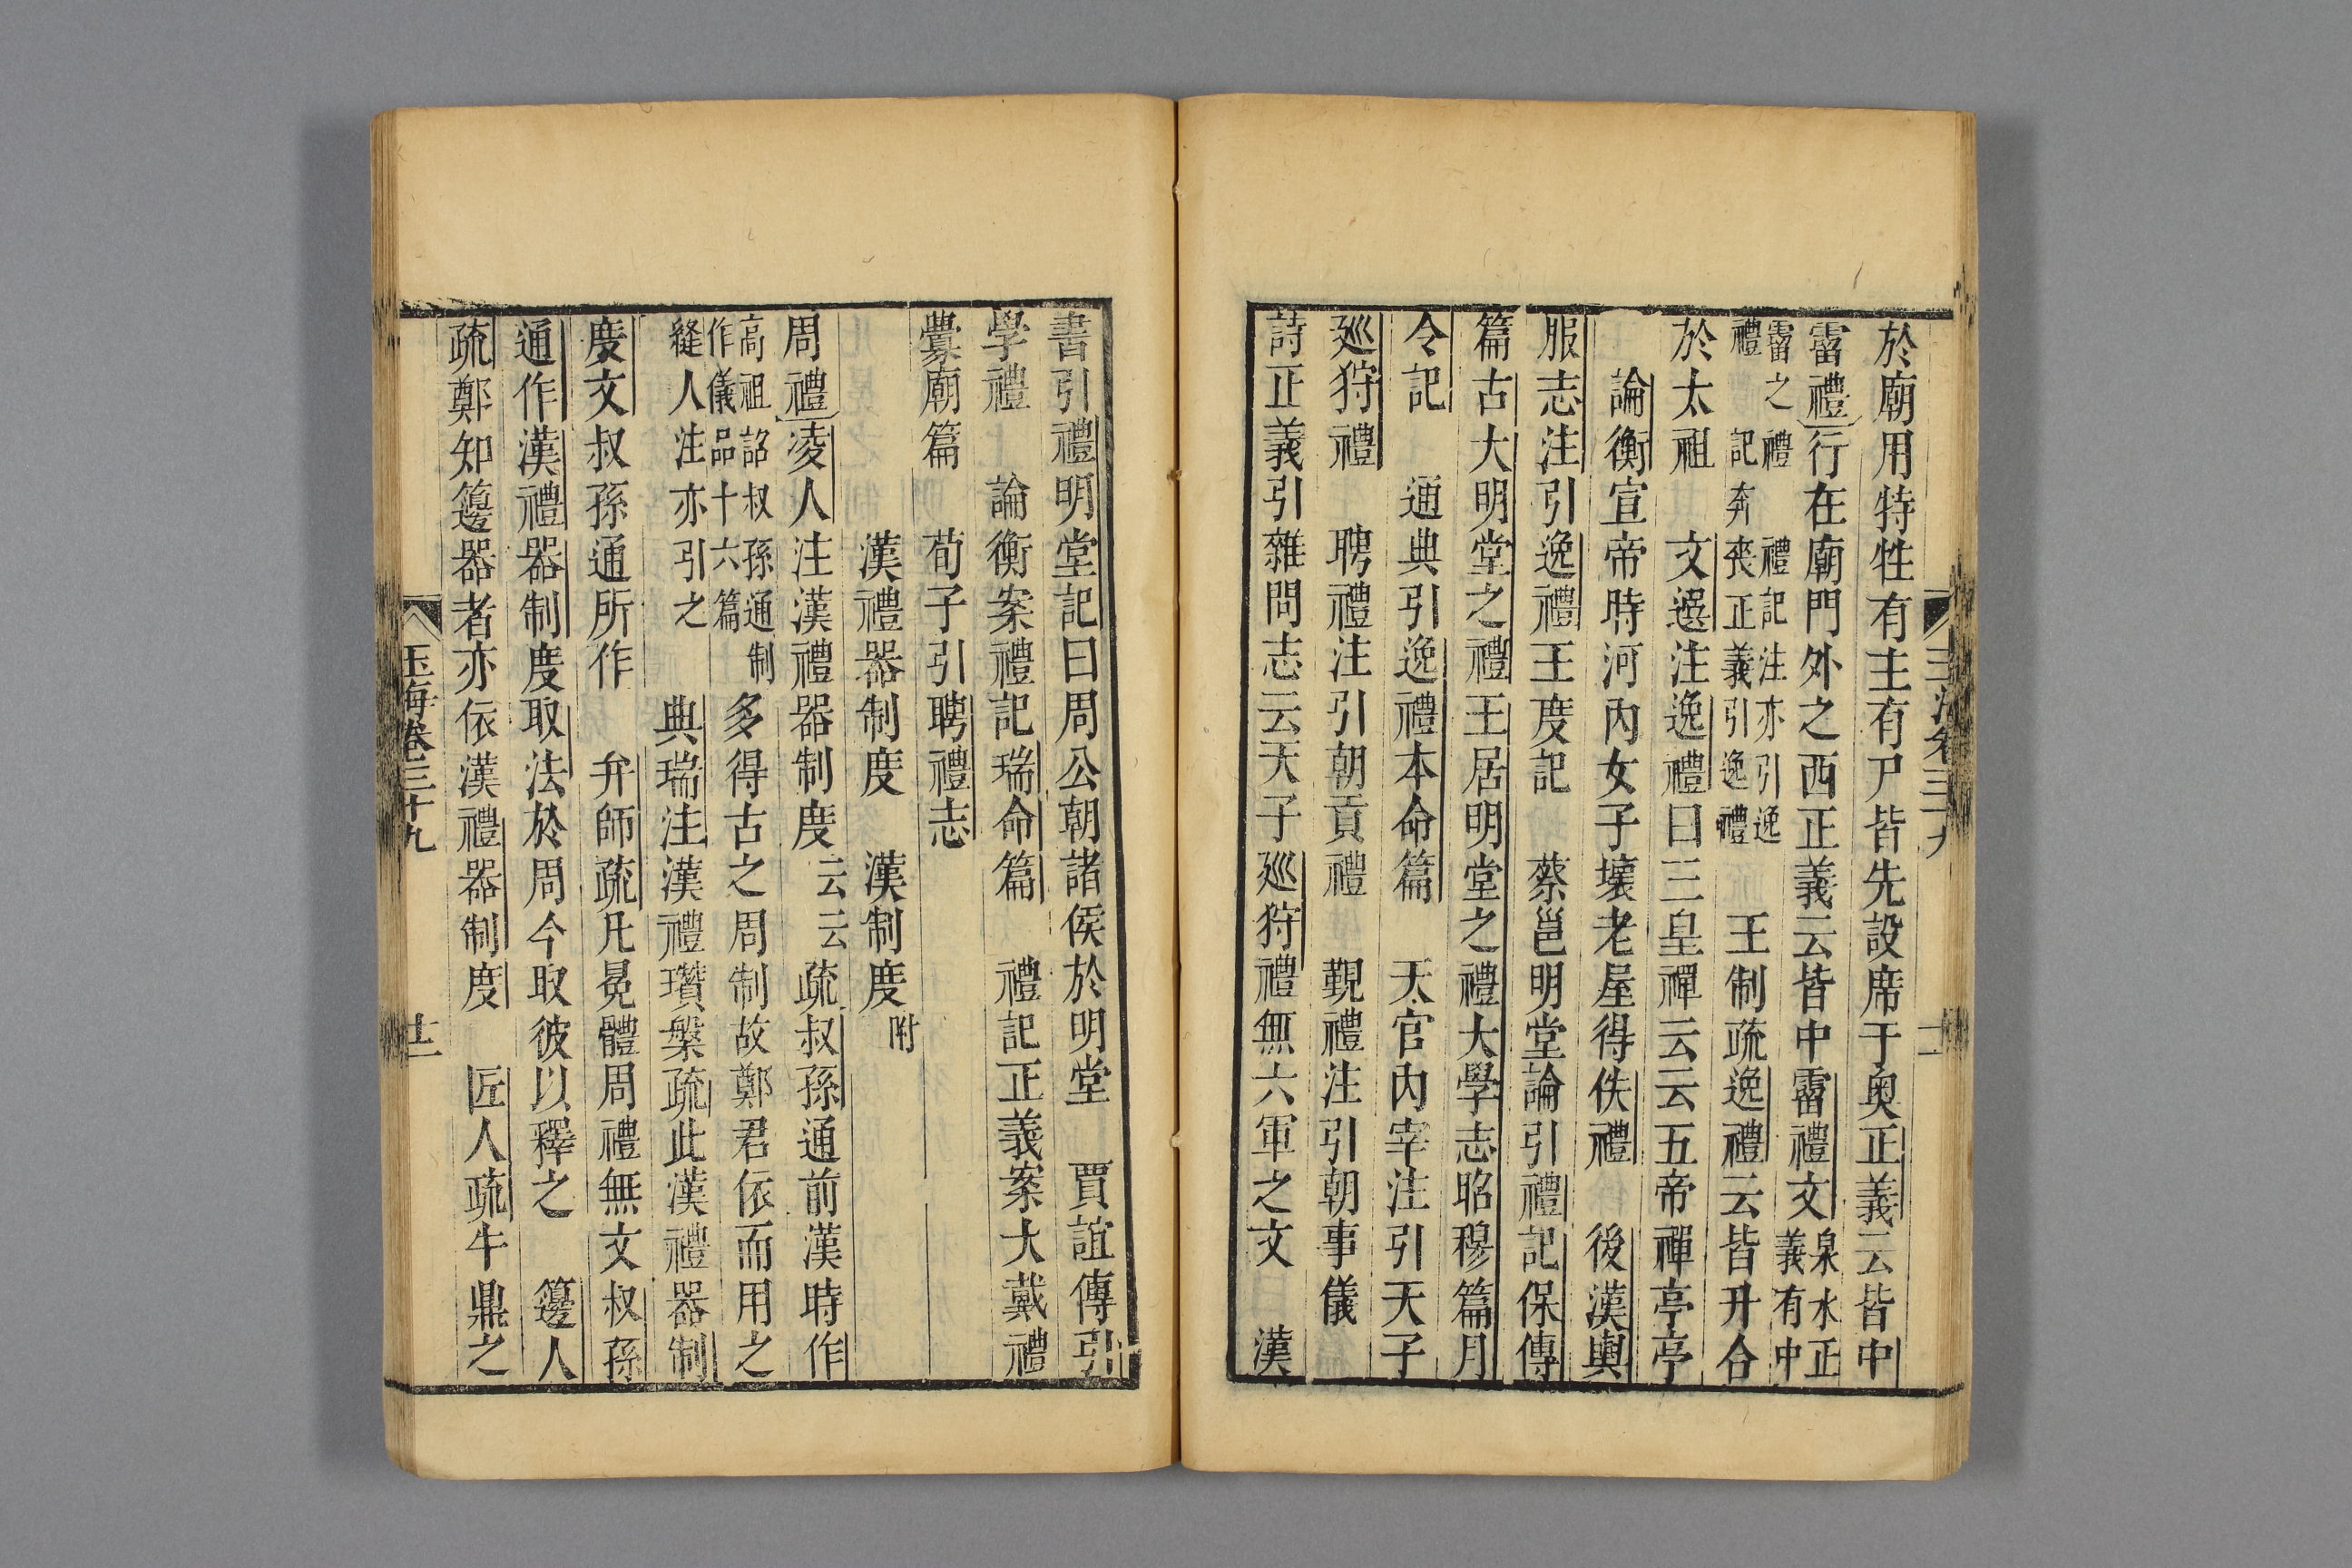 於廟用特牲有主有尸皆先設席于奥正義云皆中
霤禮行在廟門外之西正義云皆中霤禮文泉水正義有中
霤之禮 禮記注亦引逸禮記奔喪正義引逸禮 王制疏逸禮云皆升合
於太祖 文選注逸禮曰三皇禪云云五帝禪亭亭
論衡宣帝時河内女子壞老屋得佚禮 後漢輿
服志注引逸禮王度記 蔡邕明堂論引禮記保傅
篇古大明堂之禮王居明堂之禮大學志昭穆篇月
令記 通典引逸禮本命篇 天官内宰注引天子
廵狩禮 聘禮注引朝貢禮 覲禮注引朝事儀
詩正義引雜問志云天子廵狩禮無六軍之文 漢
書引禮明堂記曰周公朝諸侯於明堂 賈誼傳引
學禮 論衡案禮記瑞命篇 禮記正義案大戴禮
釁廟篇 荀子引聘禮志
漢禮器制度 漢制度附
周禮凌人注漢禮器制度云云疏叔孫通前漢時作
高祖詔叔孫通制作儀品十六篇多得古之周制故鄭君依而用之
縫人注亦引之 典瑞注漢禮瓚槃疏此漢禮器制
度文叔孫通所作 弁師疏凡冕體周禮無文叔孫
通作漢禮器制度取法於周今取彼以釋之 籩人
疏鄭知籩器者亦依漢禮器制度 匠人疏牛鼎之
玉海卷三十九